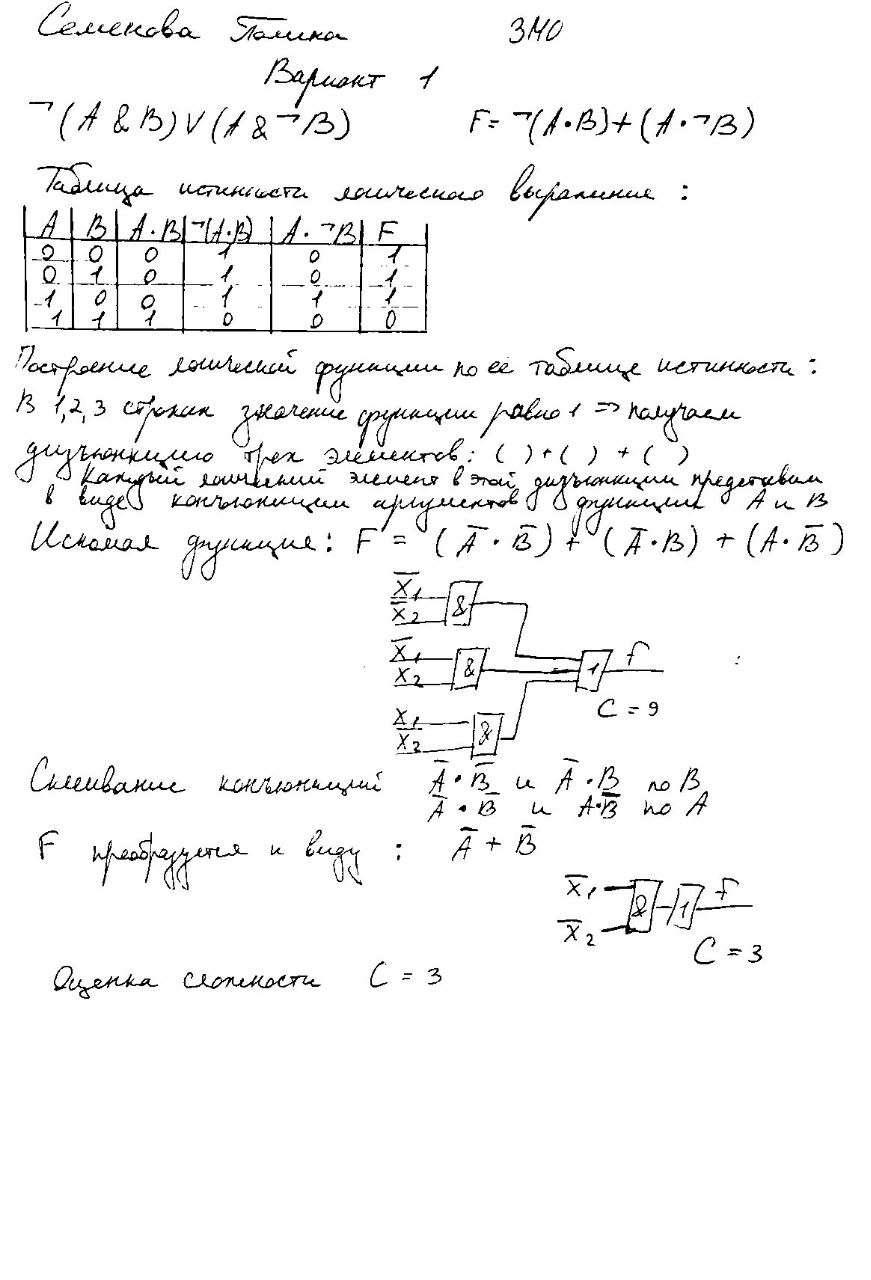 Семенова Полина ЗМО
Вариант 1
¬(A & B) V (A & ¬B) F = ¬(A·B)+(A·¬B)
Таблица истинности логического выражения :
A B A·B ¬(A·B) A·¬B F
0 0 0 1 0 1
0 1 0 1 0 1
1 0 0 1 1 1
1 1 1 0 0 0
Построение логической функции по её таблице истинности :
В 1,2,3 строках значение функции равно 1 => получаем
дизъюнкцию трех элементов: ( ) + ( ) + ( )
Каждый логический элемент в этой дизъюнкции представим
в виде конъюнкции аргументов функции A и B
Искомая функция: F = (A̅ · B̅) + (A̅ · B) + (A · B̅)
X̅₁
X̅₂ &
X̅₁
X₂ & 1 F
C = 9
X₁
X̅₂ &
Склеивание конъюнкций A̅ · B̅ и A̅ · B по B
A̅ · B̅ и A·B̅ по A
F преобразуется к виду : A̅ + B̅
X̅₁ & 1 F
X̅₂
C = 3
Оценка сложности C = 3